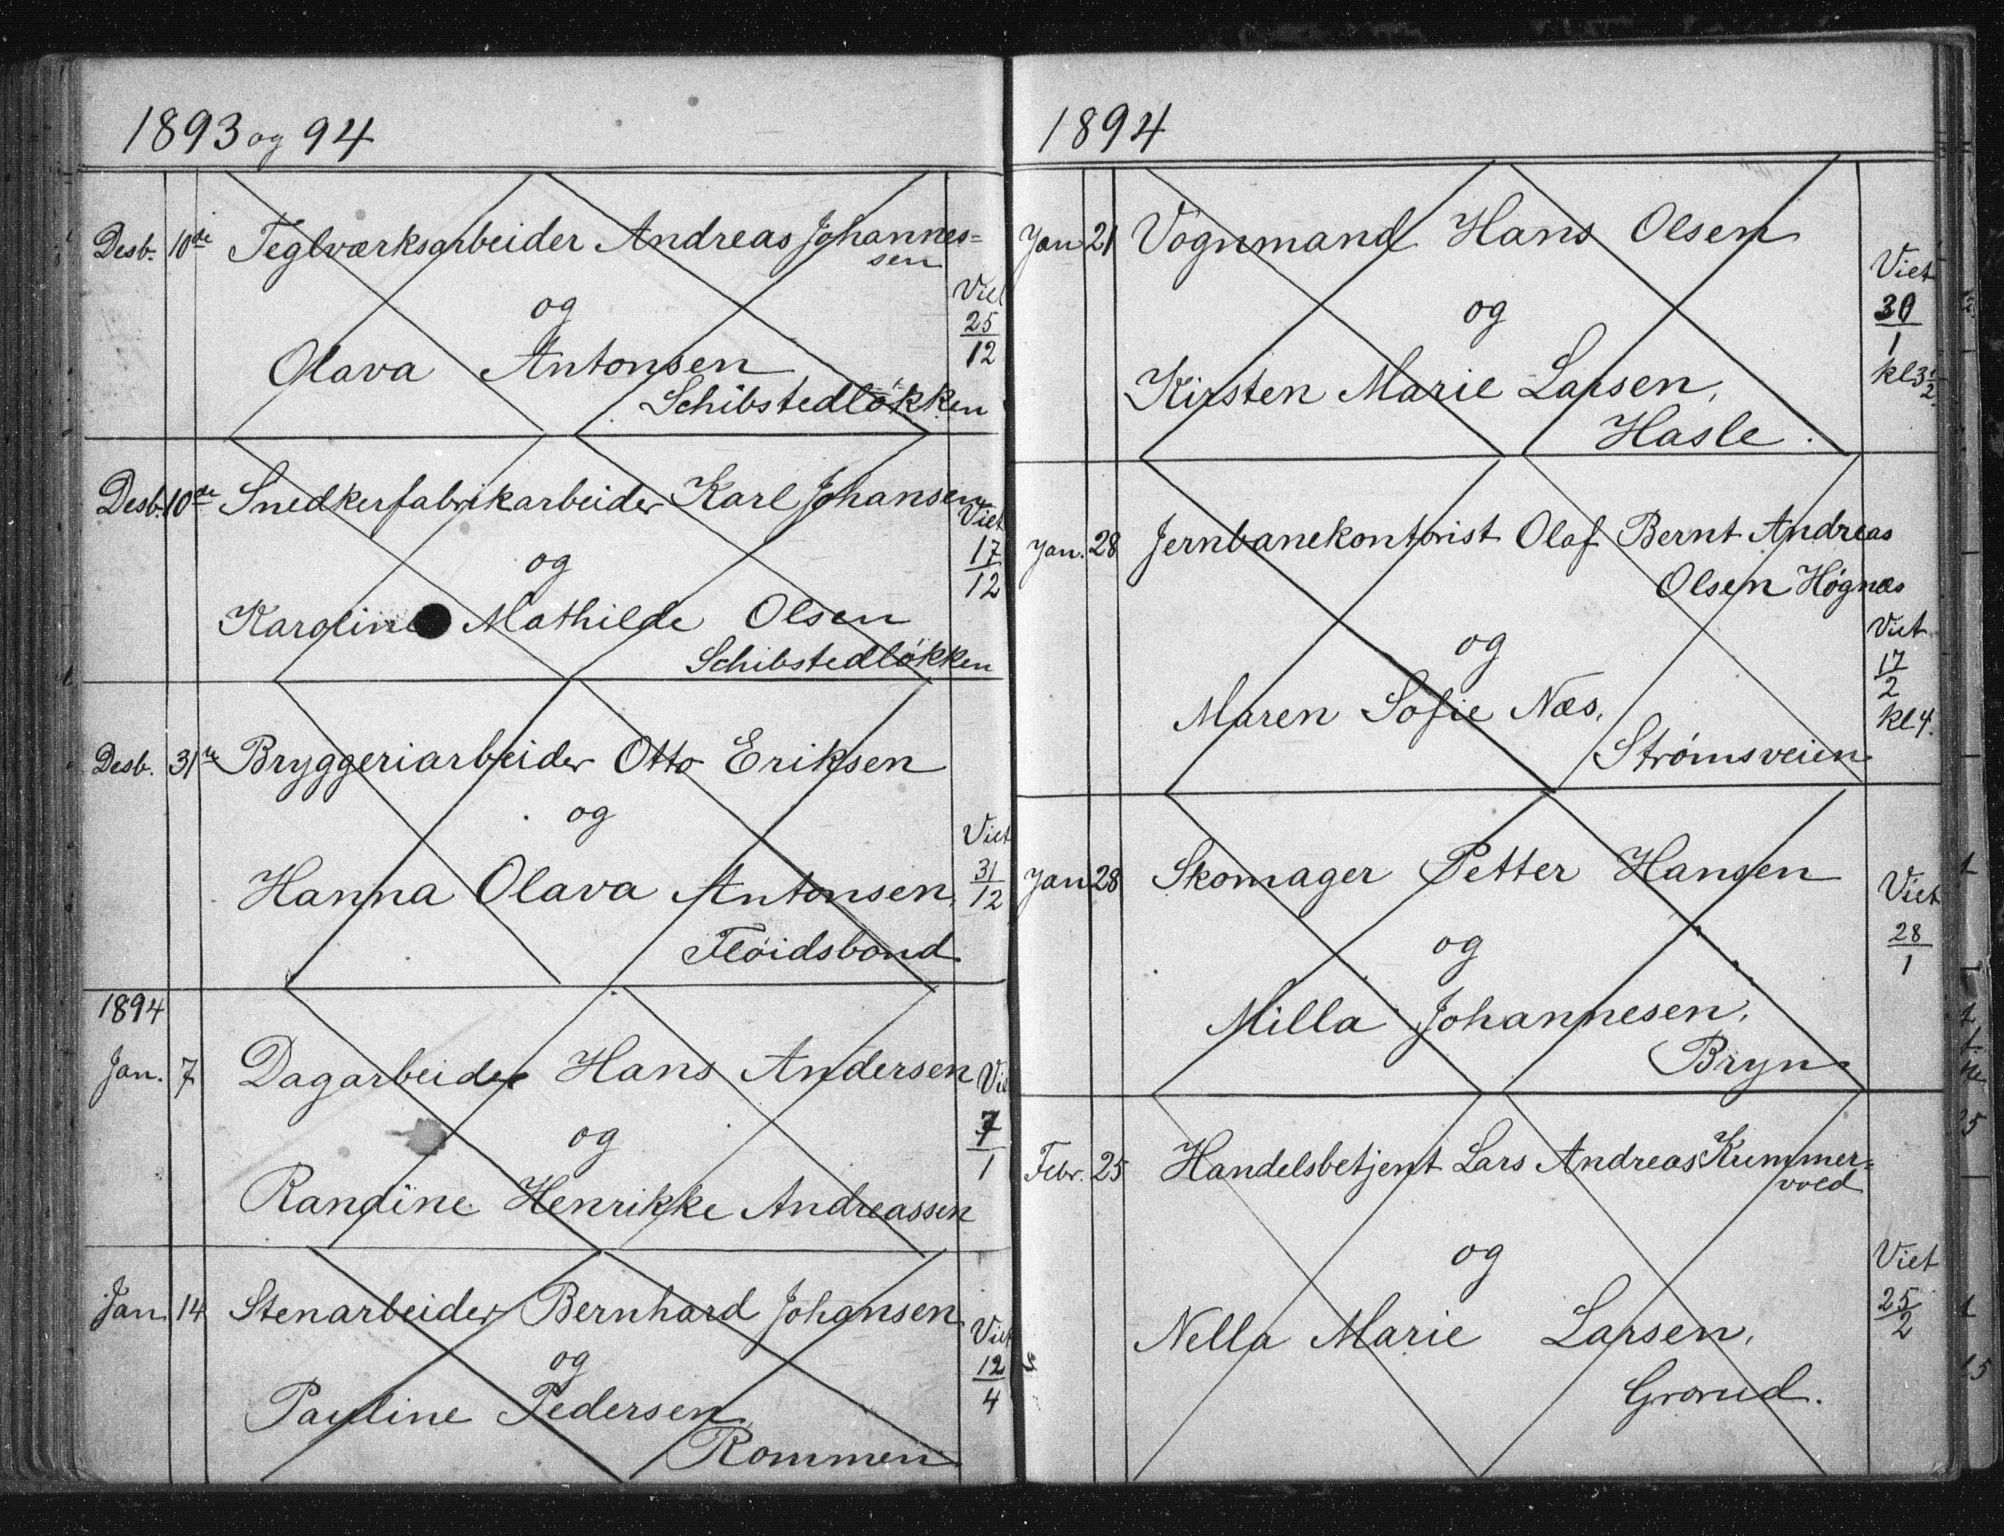 1893 og 94
Desb. 10de Teglværksarbeider Andreas Johannes=
sen
og
Olava Antonsen
Schibstedløkken
Viet
25/12
Desb. 10de Snedkerfabrikarbeider Karl Johansen
og
Karoline Mathilde Olsen
Schibstedløkken
Viet
17/12
Desb. 31te Bryggeriarbeider Otto Eriksen
og
Hanna Olava Antonsen,
Fløidsbond
Viet
31/12
1894
Jan. 7 Dagarbeider Hans Andersen
og
Randine Henrikke Andreassen
Viet
7/1
Jan. 14 Stenarbeider Bernhard Johansen
og
Pauline Pedersen,
Rommen
Viet
12/4
1894
Jan 21 Vognmand Hans Olsen
og
Kirsten Marie Larsen,
Hasle.
Viet
30/1
kl 3 1/2.
Jan. 28 Jernbanekontorist Olaf Bernt Andreas
Olsen Høgnæs
og
Maren Sofie Næs,
Strømsveien
Viet
17/2
kl 4.
Jan 28 Skomager Petter Hansen
og
Milla Johannesen,
Bryn
Viet
28/1
Febr. 25 Handelsbetjent Lars Andreas Kummer=
vold
og
Nella Marie Larsen,
Grorud.
Viet
25/2